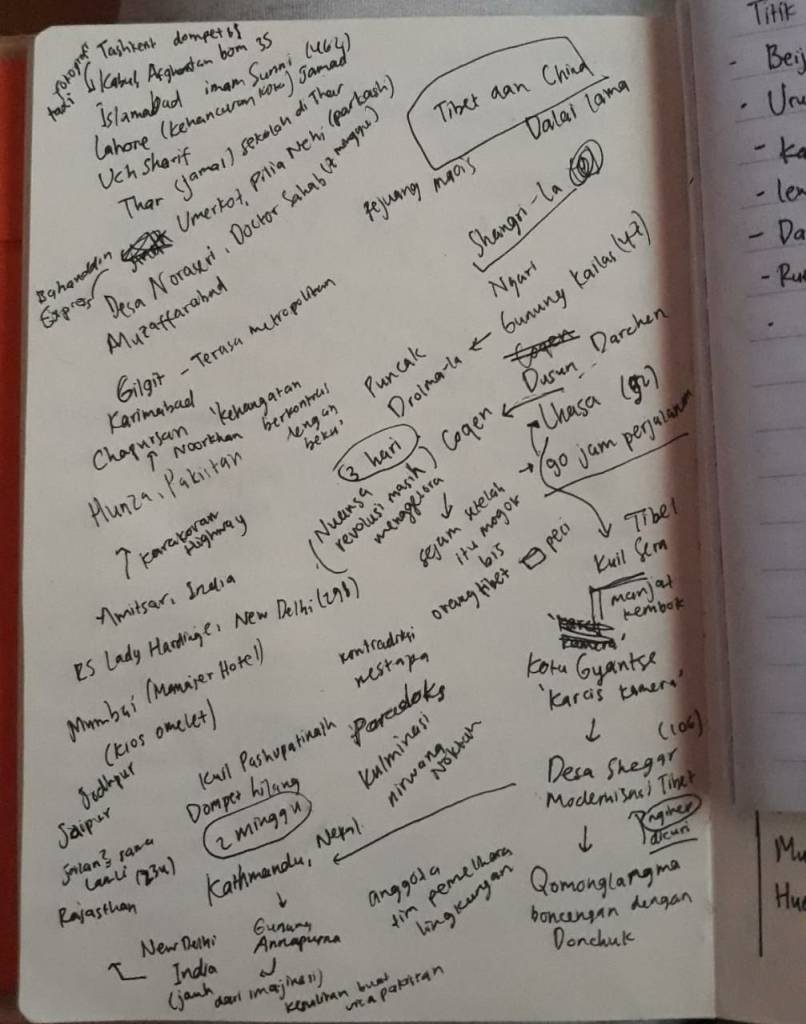 Tashkent dompet
Kabul, Afghanistan bom 35
tadi
Islamabad imam Sunni (464)
Lahore (kehancuran kota) Jamad
Uch Sharif
Thar (Jamal) sekolah di Thar
Umerkot, Pilia Nehi (parkash)
Bahauddin
Express
Desa Noraseri, Doctor Sahab (2 minggu)
Muzaffarabad
Gilgit - Terasa metropolitan
Karimabad
Chapursan 'kehangatan
↑ Noorkhan berkontras
dengan
beku'
Hunza, Pakistan
↑ Karakoram
Highway
Amritsar, India
RS Lady Hardinge, New Delhi (298)
Mumbai (Manajer Hotel)
(kios omelet)
Jodhpur
Jaipur
Jalan2 sama
Lalli (234)
Rajasthan
Tibet dan China
Dalai Lama
Pejuang
Shangri-La
Ngari
Gunung Kailas (47)
Puncak
Drolma-la ←
Coqen
Dusun ... Darchen
3 hari
Coqen ←
Lhasa (92)
90 jam perjalanan
(Nuansa
revolusi masih)
menggelora
↓
sejam setelah
itu mogok
bis
orang tibet
peci
Tibet
Kuil Sera
manjat
tembok
Kota Gyantse
'karcis kamera'
↓
Desa Shegar (106)
Modernisasi Tibet
dicuri
↓
Qomonglangma
boncengan dengan
Donchuk
kontradiksi
nestapa
Paradoks
Kulminasi
nirwana
Noktah
Kuil Pashupatinath
Dompet hilang
2 minggu
Kathmandu, Nepal
↓
Gunung
Annapurna
New Delhi
India
(jauh dari imajinasi)
kesulitan buat
visa pakistan
anggota
tim pemelihara
lingkungan
Titik
- Beij
- Ka
- Da
Mu